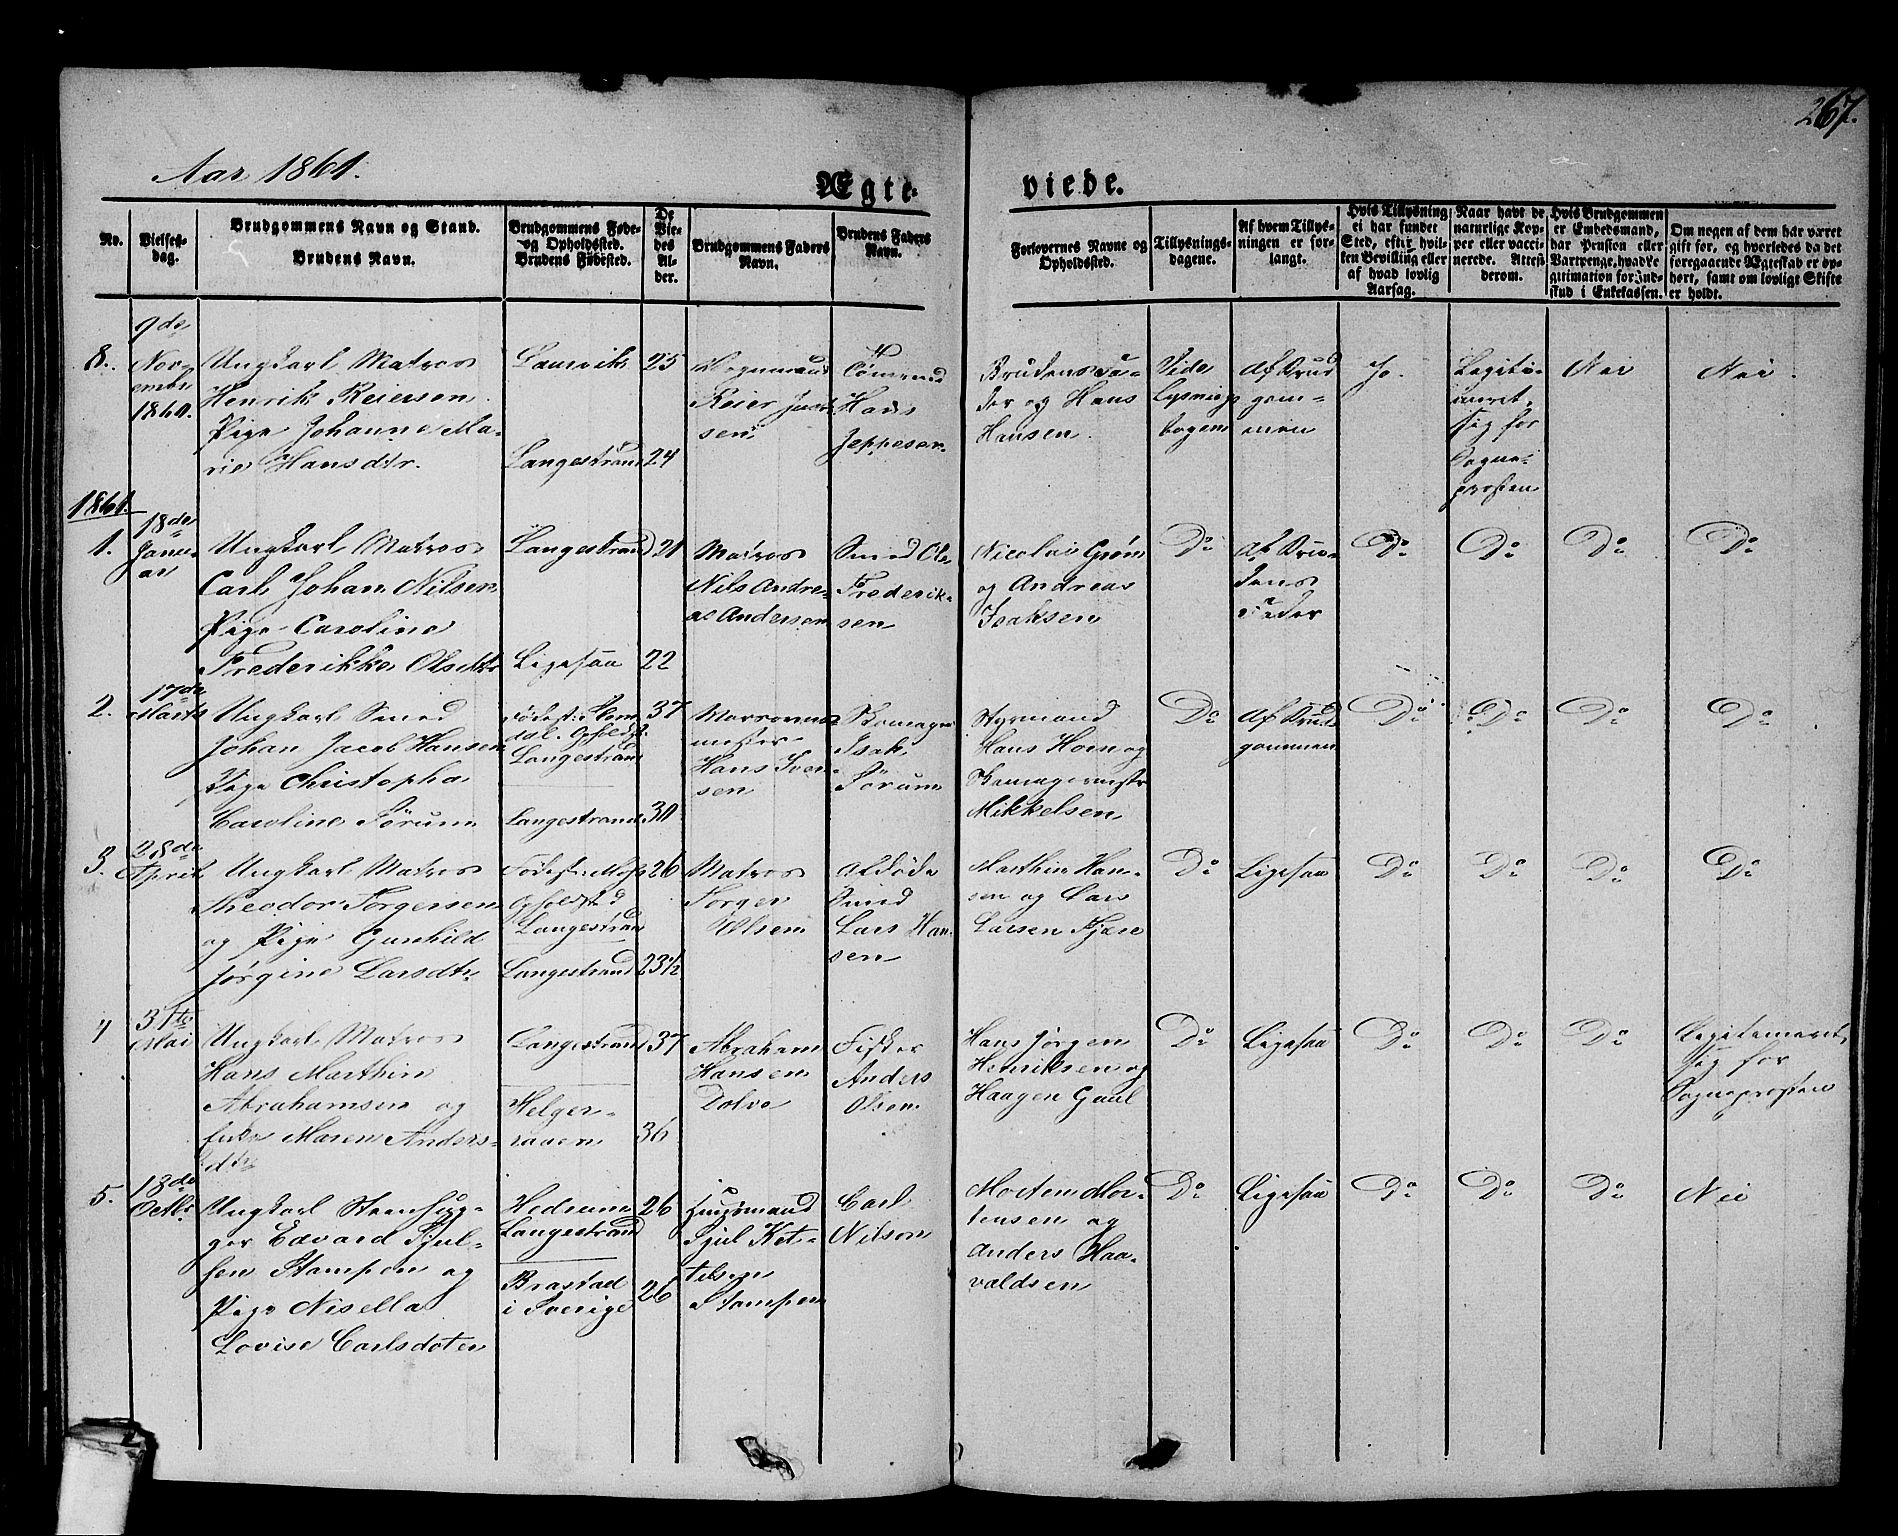 267.
Aar 1861.
Ægte-
viede.
No.
Vielses-
dag.
Brudgommens Navn og Stand.
Brudens Navn.
Brudgommens Føde-
og Opholdssted.
Brudens Fødested.
De
Vie-
des
Al-
der.
Brudgommens Faders
Navn.
Brudens Faders
Navn.
Forlovernes Navne og
Opholdssted.
Tillysnings-
dagene.
Af hvem Tillys-
ningen er for-
langt.
Hvis Tillysning
ei har fundet
Sted, efter hvil-
ken Bevilling eller
af hvad lovlig
Aarsag.
Naar havt de
naturlige Kop-
per eller vacci-
nerede. Attest
derom.
Hvis Brudgommen
er Embedsmand,
har Pension eller
Vartpenge, hvad Le-
gitimation for Ind-
skud i Enkekassen.
Om nogen af dem har været
gift før, og hvorledes da det
foregaaende Ægteskab er op-
hørt, samt om lovligt Skifte
er holdt.
8.
9de
Nov-
ember
1860.
Ungkarl Matros
Henrik Reiersen
Pige Johanne Ma-
rie Hansdtr.
Laurvik
Langestrand
25
24
Reier Just-
sen
Tømmermd
Hans
Jeppesen
Brudens Fa-
der og Hans
Hansen
Vide
Lysnings
bogen
Af Brud
gom-
men
Jo.
Legiti-
meret
sig for
Sogne-
prosten
Nei
Nei.
1861.
1.
18de
Janu-
ar
Ungkarl Matros
Carl Johan Nilsen
Pige Caroline
Frederikke Olsdtr
Langestrand
Ligesaa
21
22
Matros
Nils Andre-
as Andersen
Smed Ole
Frederik-
sen
Nicolai Grøm
og Andreas
Isaksen
Do
Af Bru-
dens
Fader
Do
Do
Do
Do
2.
17de
Marts
Ungkarl Smed
Johan Jacob Hansen
Pige Christopha
Caroline Sørum
Langestrand
Langestrand
37
30
Hans Iver-
sen
Skomager
Isak
Sørum
Styrmand
Hans Horn og
Skomagermstr
Mikkelsen
Do
Af Brud
gommen
Do
Do
Do
Do
3.
28de
April
Ungkarl Matros
Theodor Torgersen
og Pige Gunhild
Jørgine Larsdtr
Fødest: Moss
Opholdssted
Langestrand
Langestrand
26
23 1/2
Matros
Torger
Olsen
Afdøde
Smed
Lars Han-
sen
Marthin Han-
sen og Lars
Larsen Fjære
Do
Ligesaa
Do
Do
Do
Do
4
31te
Mai
Ungkarl Matros
Hans Marthin
Abrahamsen og
Enke Maren Anders-
dtr
Langestrand
Helger-
raaen
37
36
Abraham
Hansen
Dolve
Fisker
Anders
Olsen
Hans Jørgen
Henriksen og
Haagen Gaul
Do
Ligesaa
Do
Do
Do
Legitimeret
sig for
Sogneprosten
5.
18de
Octbr
Ungkarl Steenhug-
ger Edvard Sjul-
sen Stampen og
Pige Nisella
Lovise Carlsdoter
Hedrum
Langestrand
Brastad
i Sverige
26
26
Huusmand
Sjul Ket-
telsen
Stampen
Carl
Nilson
Morten Mor-
tensen og
Anders Haa-
valdsen
Do
Ligesaa
Do
Do
Do
Nei